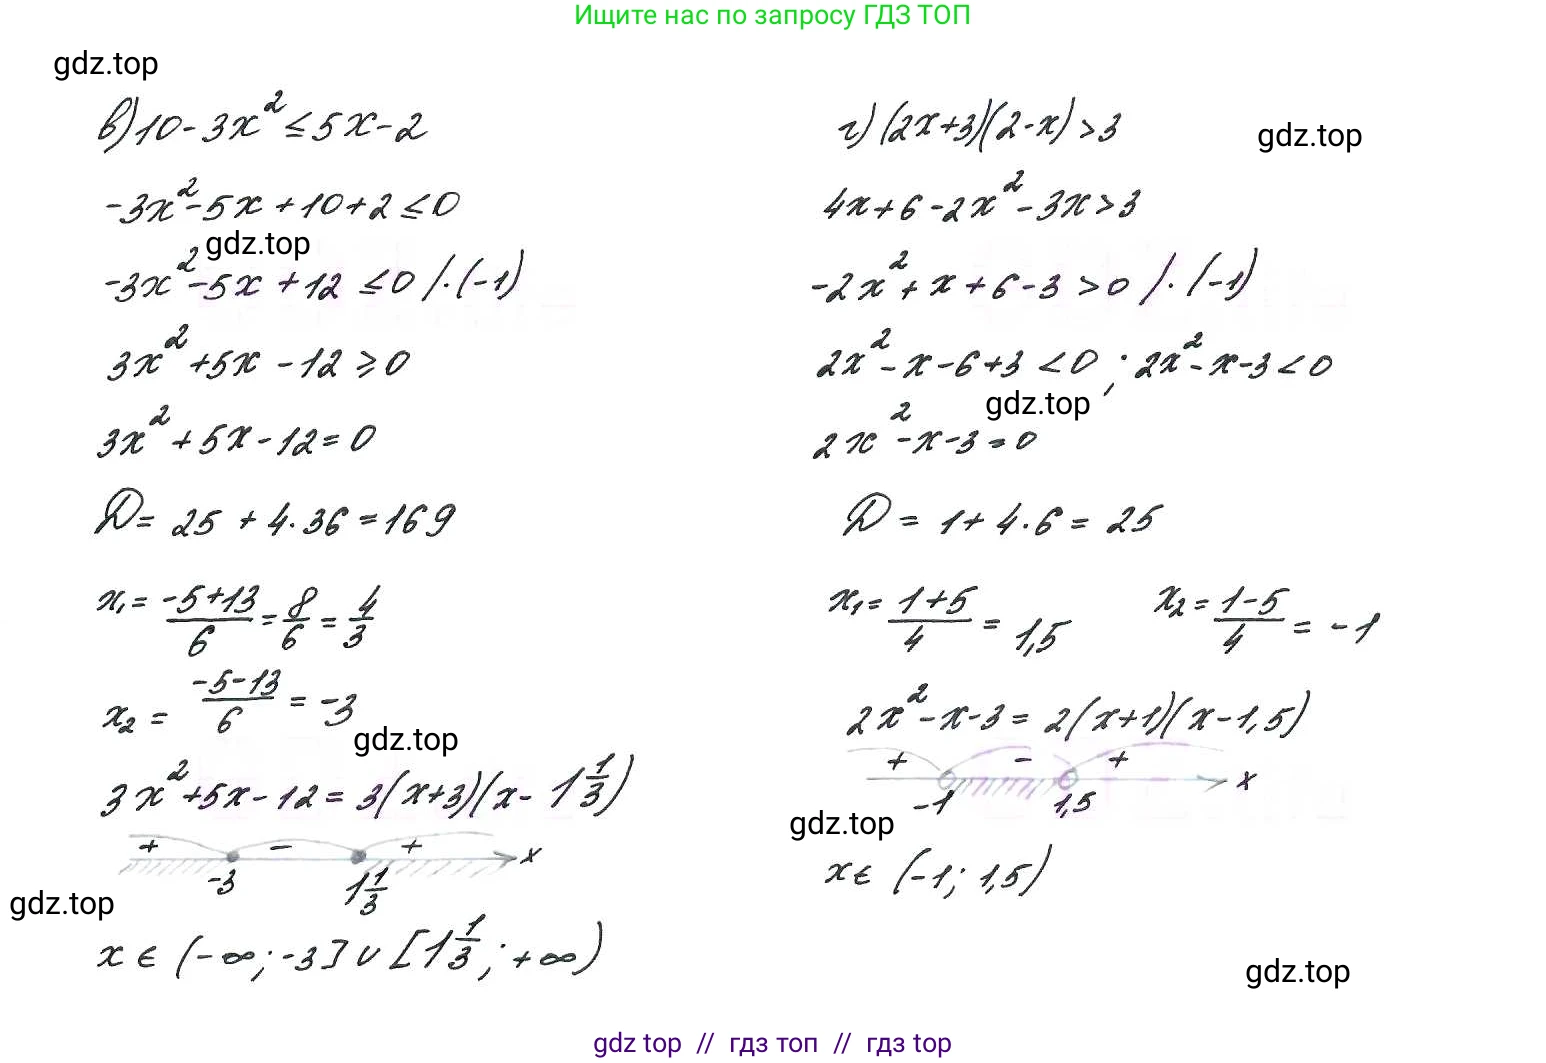 Ищите нас по запросу ГДЗ ТОП
gdz.top
в) 10 - 3x² ≤ 5x - 2
-3x² - 5x + 10 + 2 ≤ 0
gdz.top
-3x² - 5x + 12 ≤ 0 / · (-1)
3x² + 5x - 12 ≥ 0
3x² + 5x - 12 = 0
D = 25 + 4 · 36 = 169
x₁ = (-5+13)/6 = 8/6 = 4/3
x₂ = (-5-13)/6 = -3
gdz.top
3x² + 5x - 12 = 3(x+3)(x - 1 1/3)
+ - + x
-3 1 1/3
gdz.top
x ∈ (-∞; -3] ∪ [1 1/3; +∞)
г) (2x+3)(2-x) > 3
gdz.top
4x + 6 - 2x² - 3x > 3
-2x² + x + 6 - 3 > 0 / · (-1)
2x² - x - 6 + 3 < 0 ; 2x² - x - 3 < 0
gdz.top
2x² - x - 3 = 0
D = 1 + 4 · 6 = 25
x₁ = (1+5)/4 = 1,5 x₂ = (1-5)/4 = -1
2x² - x - 3 = 2(x+1)(x-1,5)
+ - + x
-1 1,5
gdz.top
x ∈ (-1; 1,5)
gdz.top
gdz top // гдз топ // гдз top